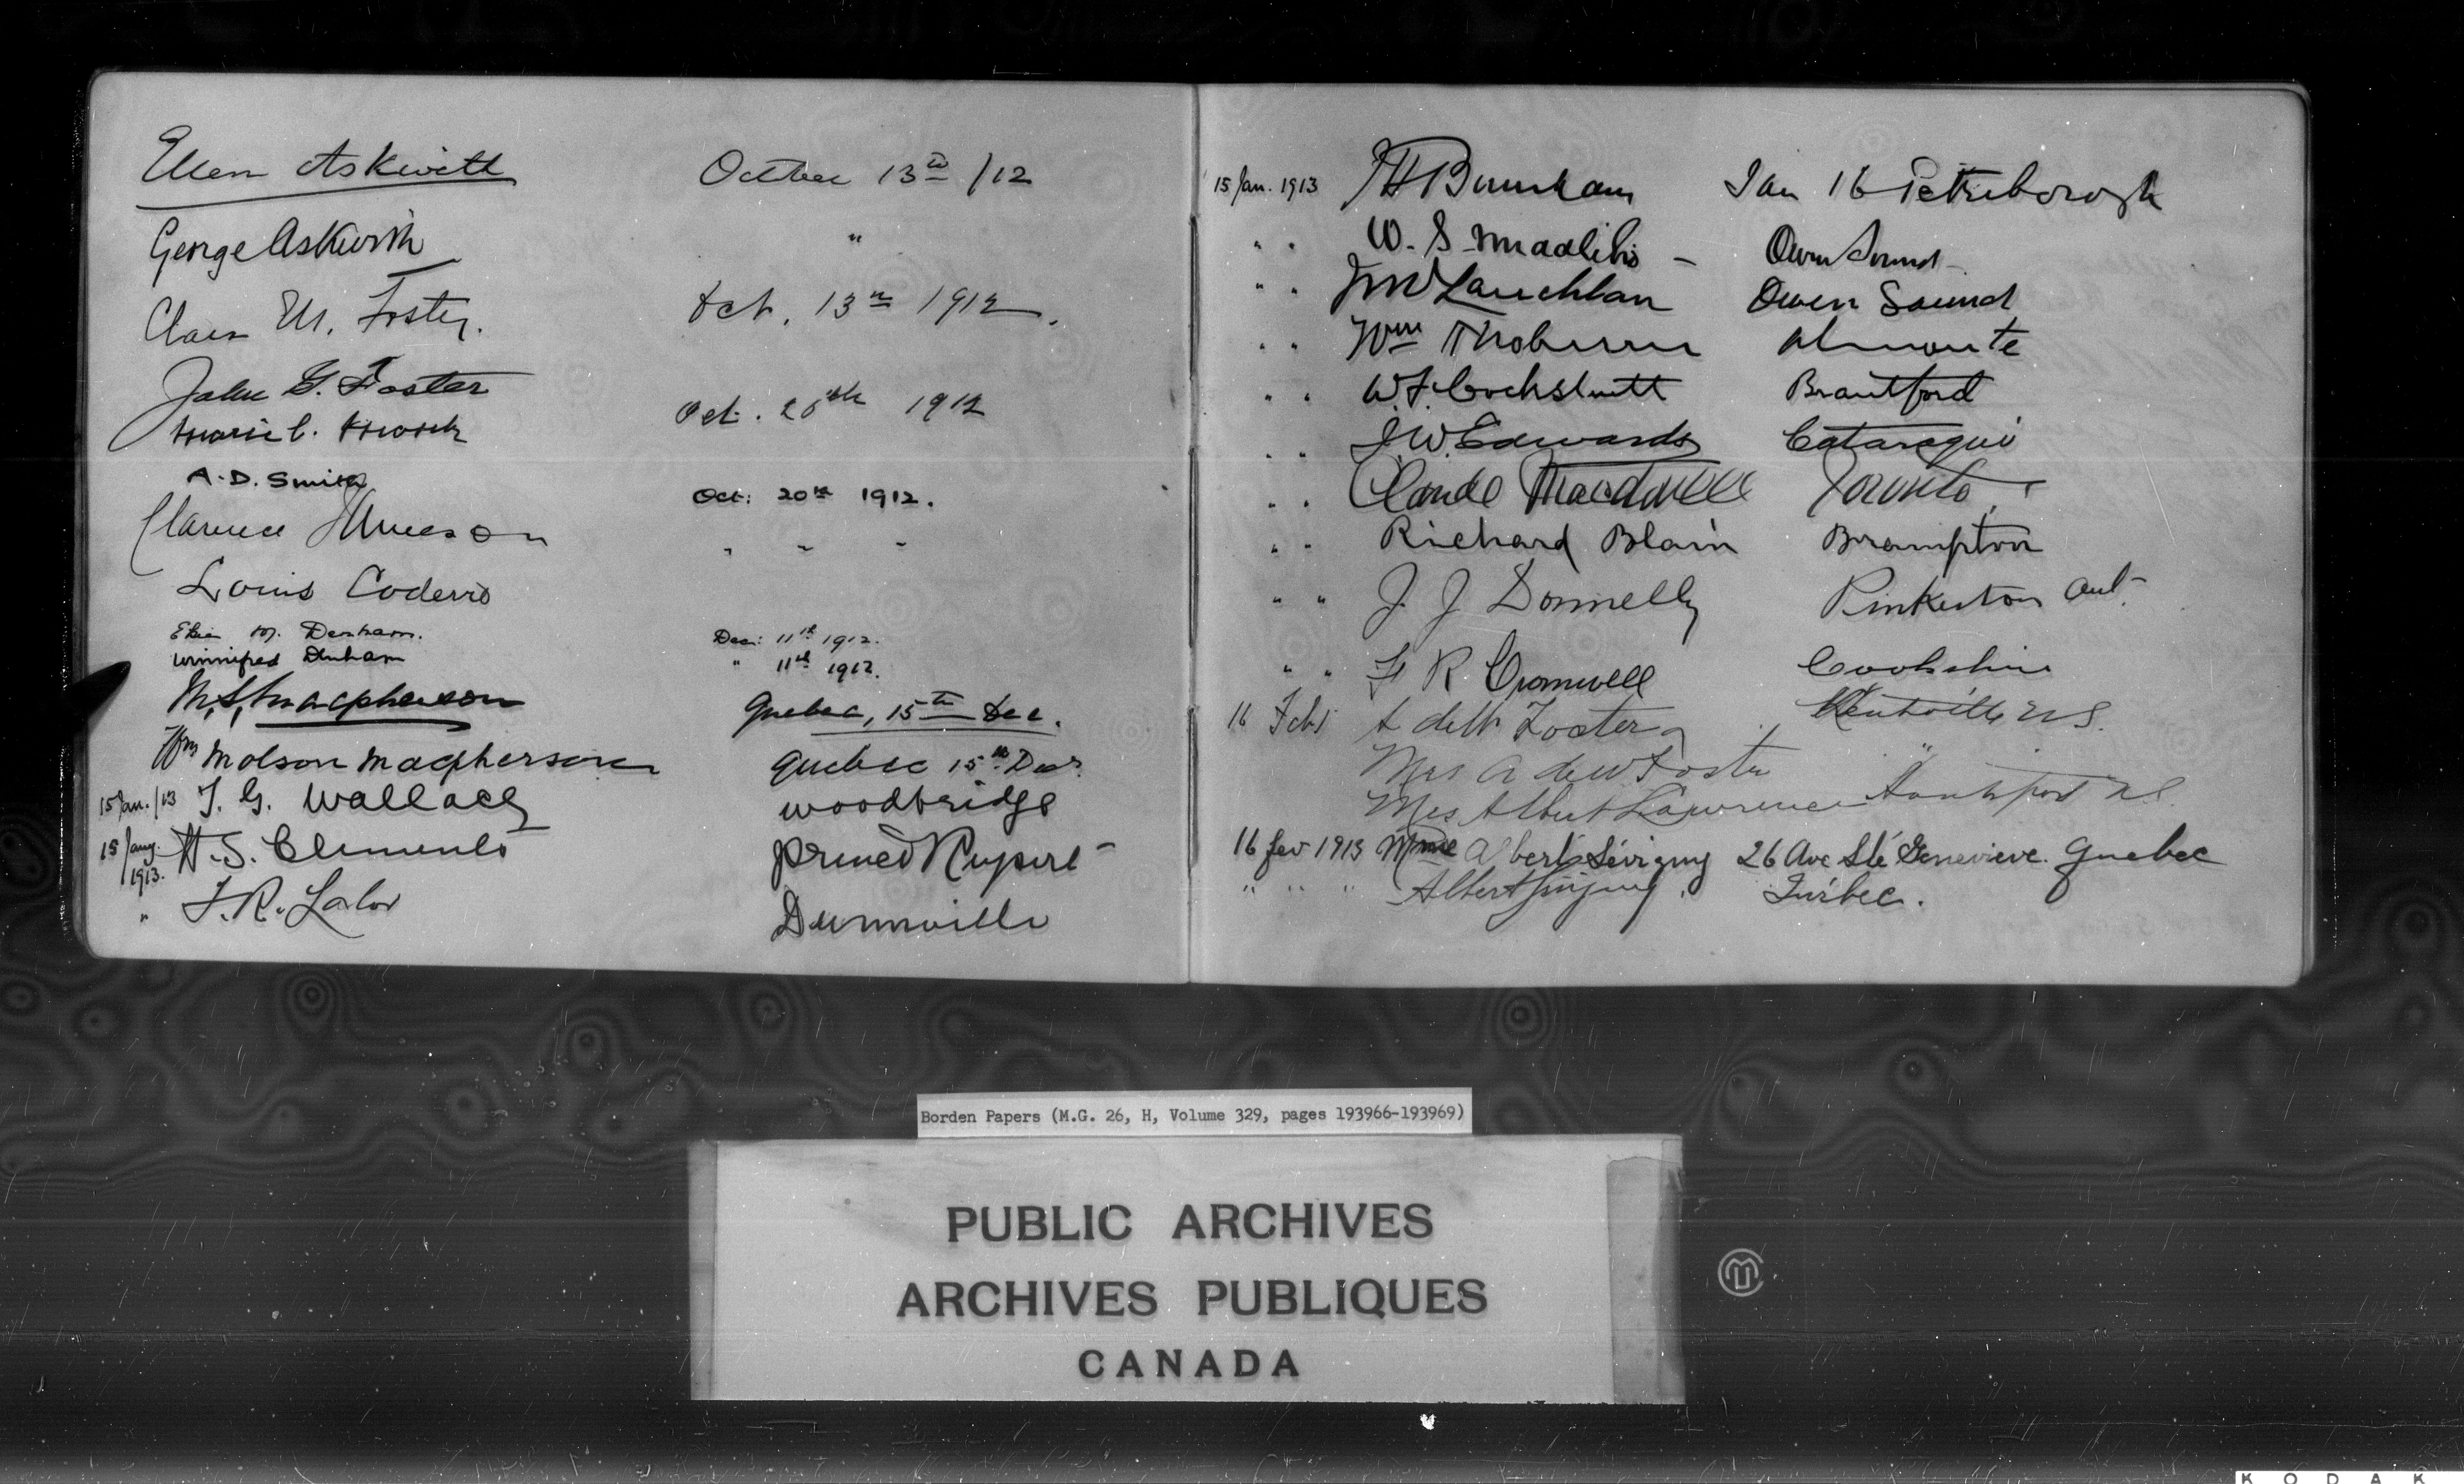 Ellen Askwith October 13th /12
George Askwith "
Clara M. Foster. Oct. 13th 1912.
John G. Foster
Marie C. Oct. 20th 1912
A. D. Smith Oct: 20th 1912.
Clarence Jameson " " "
Louis Coderre
Elsie M. Denham. Dec: 11th 1912.
Winnifred Denham " 11th 1912.
M. S. Macpherson Quebec, 15th Dec.
Wm Molson Macpherson Quebec 15th Decr.
15 Jan./13 T. G. Wallace Woodbridge
15 Jany. 1913. H. S. Clements Prince Rupert
" F. R. Lalor Dunnville
15 Jan. 1913 J H Burnham Jan 16 Peterborough
" " W. S. Middlebro - Owen Sound
" " J McLauchlan Owen Sound
" " Wm Thoburn Almonte
" " W. F. Cockshutt Brantford
" " J. W. Edwards Cataraqui
" " Claude Macdonell Toronto
" " Richard Blain Brampton
" " J. J Donnelly Pinkerton Ont.
" " F R Cromwell Cookshire
16 Feby A deW. Foster Kentville N S.
Mrs A deW Foster "
Mrs Albert Lawrence Hantsport N.S.
16 fev 1913 Mme Albert Sévigny 26 Ave Ste Genevieve. Quebec
" " " Albert Sévigny. Québec.
Borden Papers (M.G. 26, H, Volume 329, pages 193966-193969)
PUBLIC ARCHIVES
ARCHIVES PUBLIQUES
CANADA
KODAK